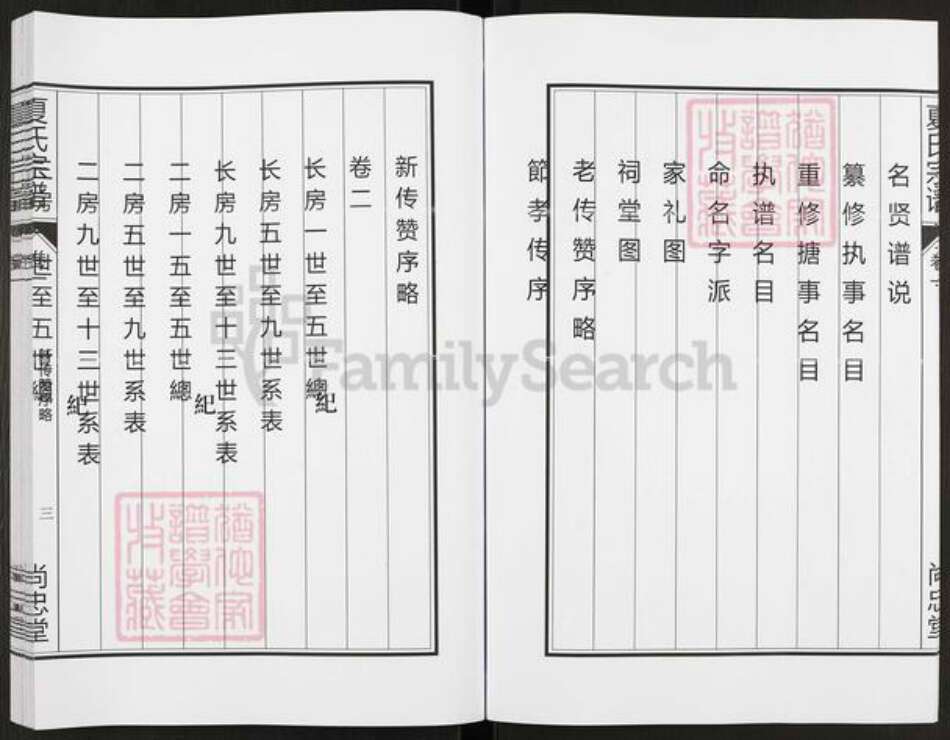 名贤谱说
纂修执事名目
重修搪事名目
执谱名目
命名字派
家礼图
祠堂图
老传赞序略
節孝传序
新传赞序略
卷二
长房一世至五世總紀
长房五世至九世系表
长房九世至十三世系表
二房一五至五世總紀
二房五世至九世系表
二房九世至十三世系表
紀
三
尚忠堂
夏氏宗谱
尚忠堂
猶他家譜學會收藏
猶他家譜學會收藏
FamilySearch